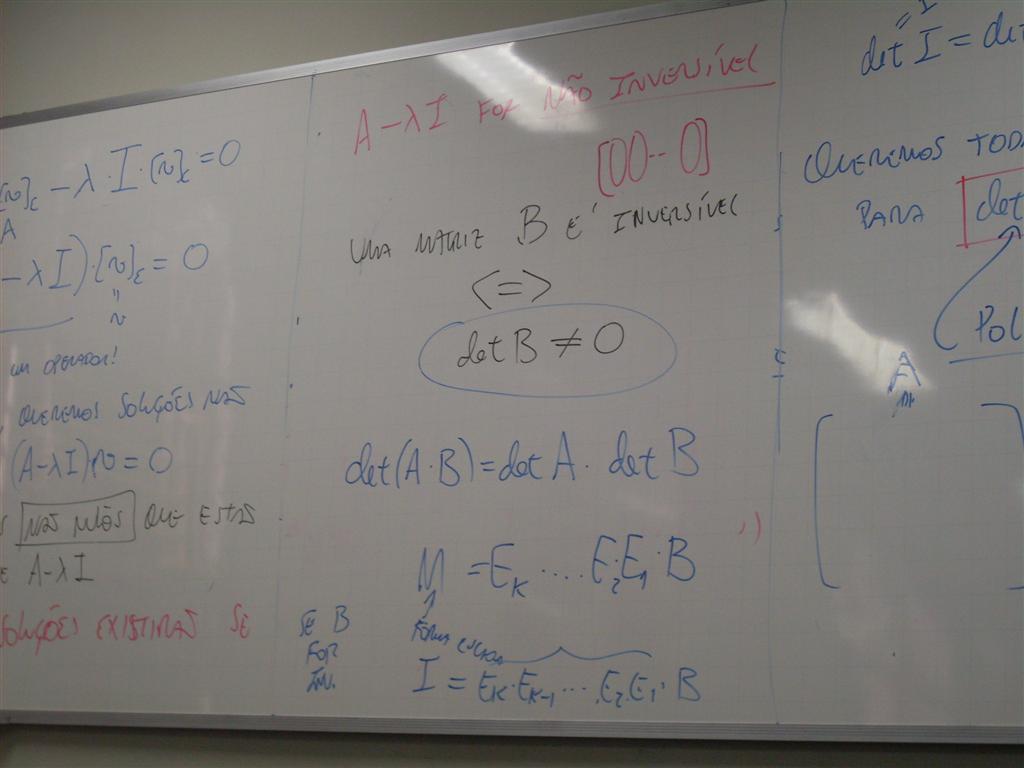 [v]ε - λ · I · [v]ε = 0
A
- λI) · [v]ε = 0
"
v
UM OPERADOR!
QUEREMOS SOLUÇÕES NÃO
(A-λI)v = 0
NÃO NULOS QUE ESTÃO
A-λI
SOLUÇÕES EXISTIRÃO SE
A-λI FOR NÃO INVERSÍVEL
[00--0]
UMA MATRIZ B É INVERSÍVEL
<=>
det B ≠ 0
det(A·B) = det A · det B
M = Ek .... E2E1·B
FORMA ESCADA
SE B
FOR
INV.
I = Ek·Ek-1 ... E2·E1·B
= I
det I = det
QUEREMOS TODO
PARA det
POL
A